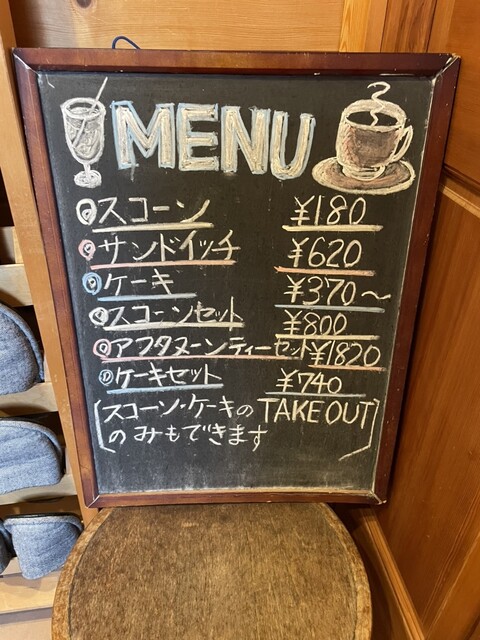 MENU
◎スコーン ¥180
◎サンドイッチ ¥620
◎ケーキ ¥370〜
◎スコーンセット ¥800
◎アフタヌーンティーセット¥1820
◎ケーキセット ¥740
[スコーン・ケーキの TAKE OUT
のみもできます]